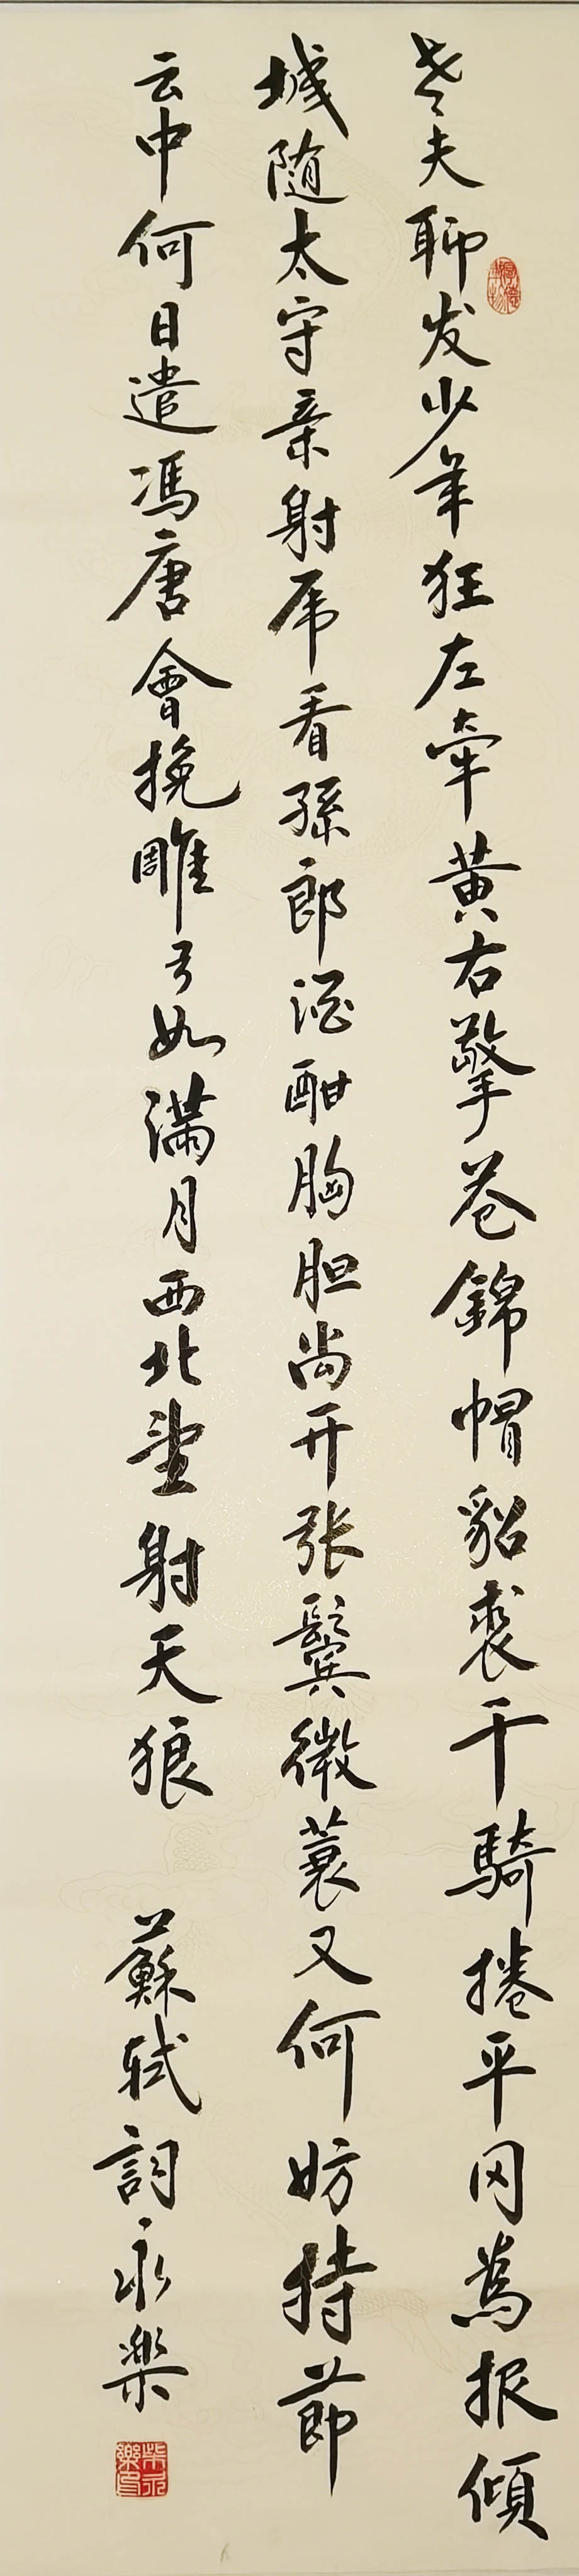 老夫聊发少年狂左牵黄右擎苍錦帽貂裘千騎捲平冈為报傾
城随太守亲射虎看孫郎酒酣胸胆尚开张鬓微又何妨持莭
云中何日遣馮唐會挽雕弓如满月西北望射天狼 蘇轼詞永楽